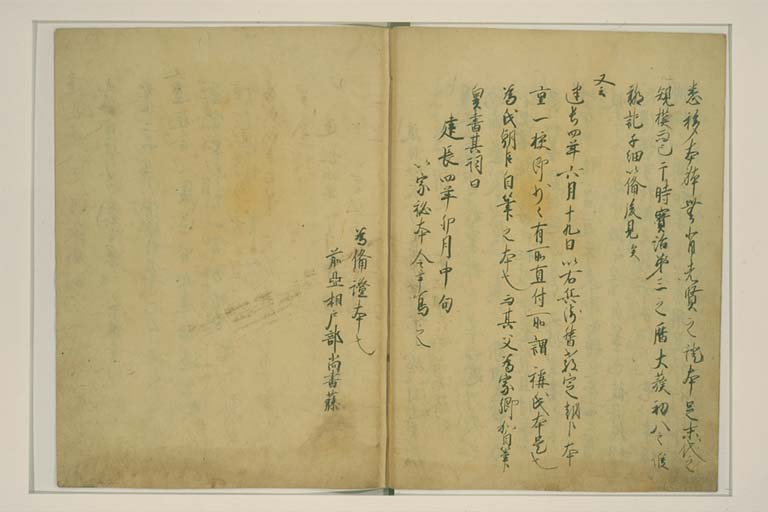 悉移本躰無背先賢之證本足末代之
規模而已于時寶治第三之暦大蔟初八之候
聊記子細以備後見矣
又云
建長四年六月十九日以右兵衛督教定朝臣本
重一校即少々有所直付所謂稱氏本是也
為氏朝臣自筆之本也而其父為家卿加自筆
奥書其詞曰
建長四年卯月中旬
以家秘本令書写之
為備證本也
前亜相戸部尚書藤